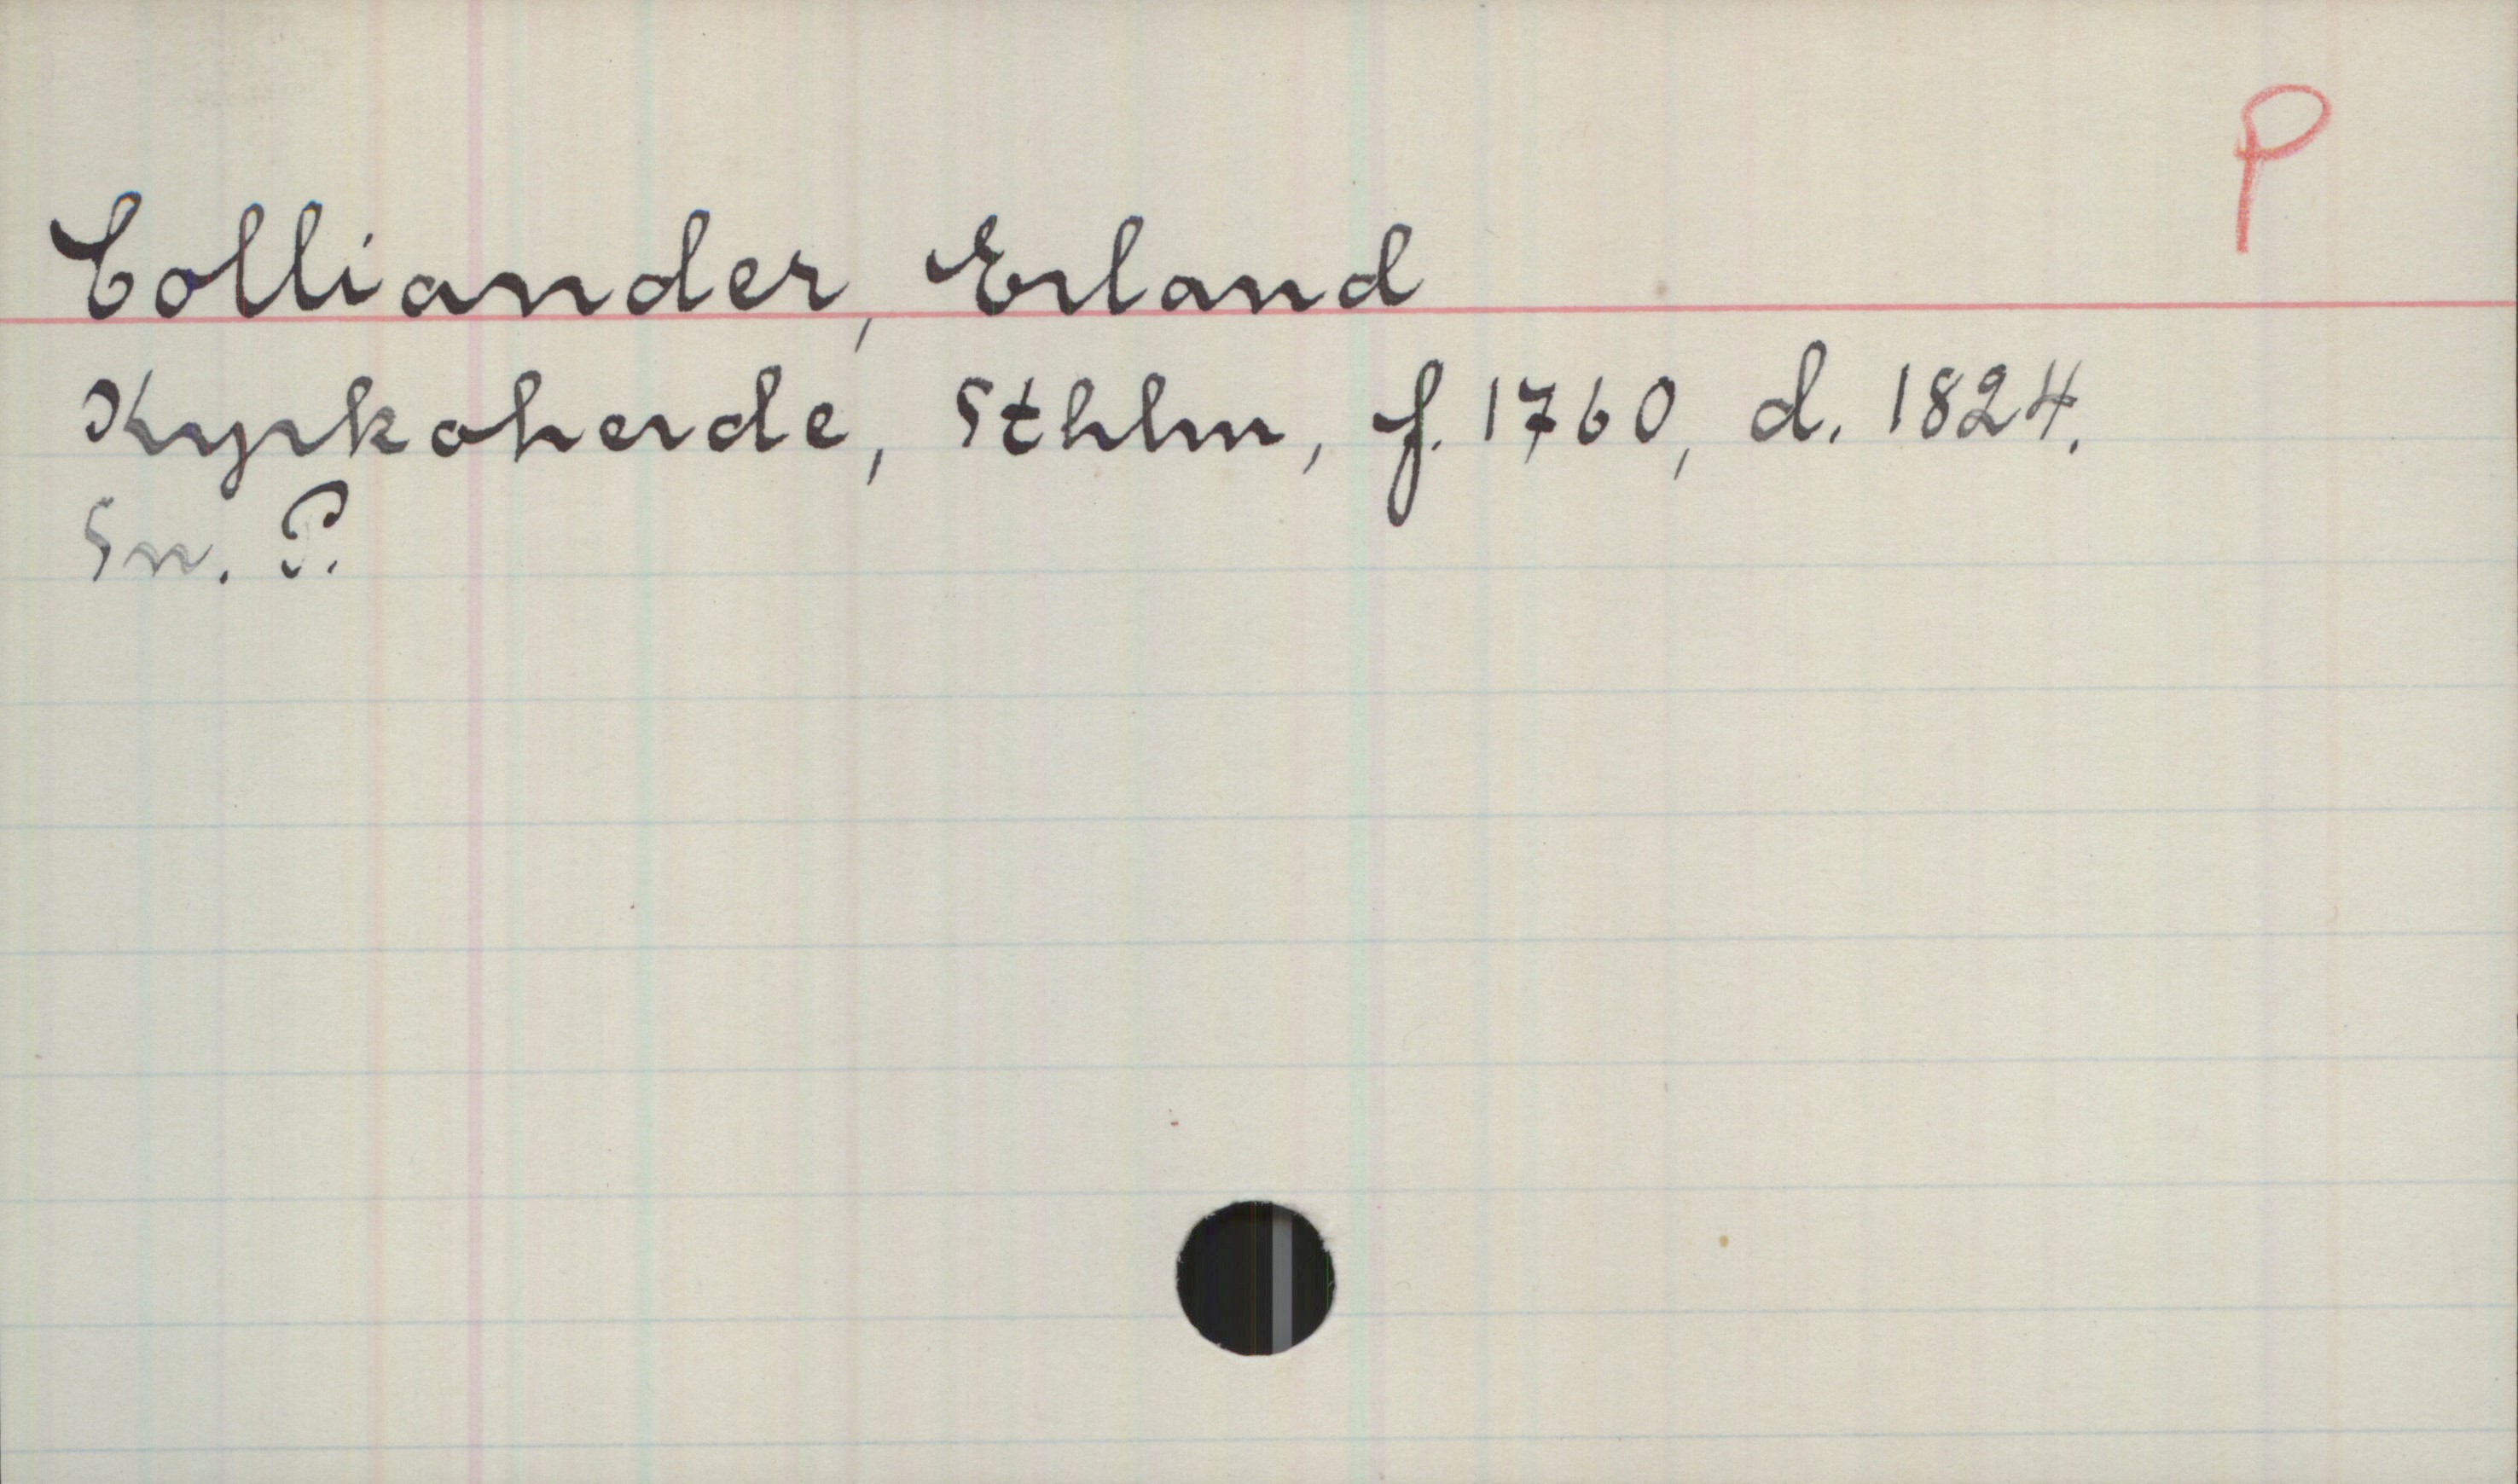 P
Colliander, Erland
Kyrkoherde, Sthlm, f. 1760, d. 1824.
Sn. P.